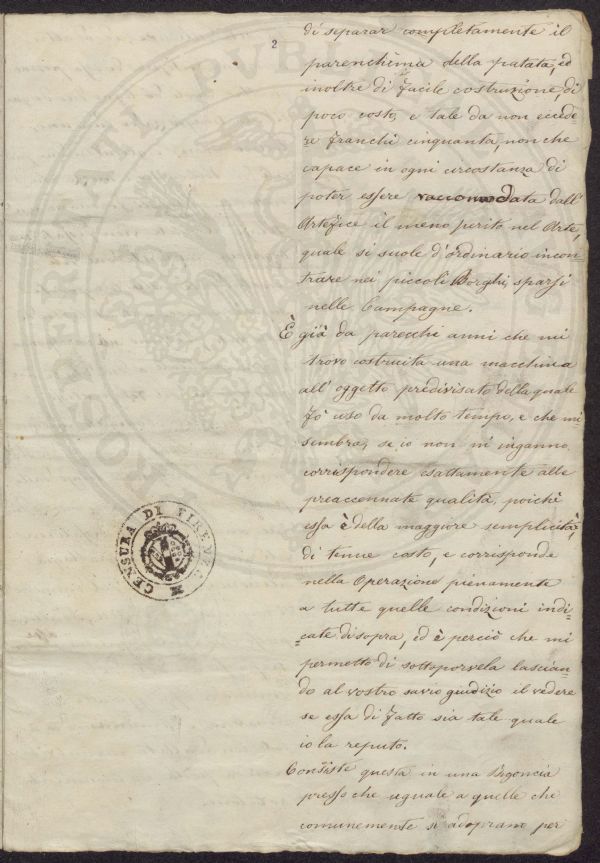 2
di separar completamente il
parenchima della patata, ed
inoltre di facile costruzione, di
poco costo, e tale da non eccede=
re franchi cinquanta, non che
capace in ogni circostanza di
poter essere raccomodata dall'
Artefice il meno perito nel Arte,
quale si suole d'ordinario incon=
trare nei piccoli Borghi, sparsi
nelle Campagne.
È già da parecchi anni che mi
trovo costruita una macchina
all'oggetto predivisato della quale
fo uso da molto tempo, e che mi
sembra, se io non m'inganno
corrispondere esattamente alle
preaccennate qualità, poichè
essa è della maggiore semplicità,
di tenue costo, e corrisponde
nella Operazione pienamente
a tutte quelle condizioni indi=
=cate di sopra, ed è perciò che mi
permetto di sottoporvela lascian=
do al vostro savio giudizio il vedere
se essa di fatto sia tale quale
io la reputo.
Consiste questa in una Bigoncia
presso che uguale a quelle che
comunemente si adoprano per
CENSURA DI FIRENZE